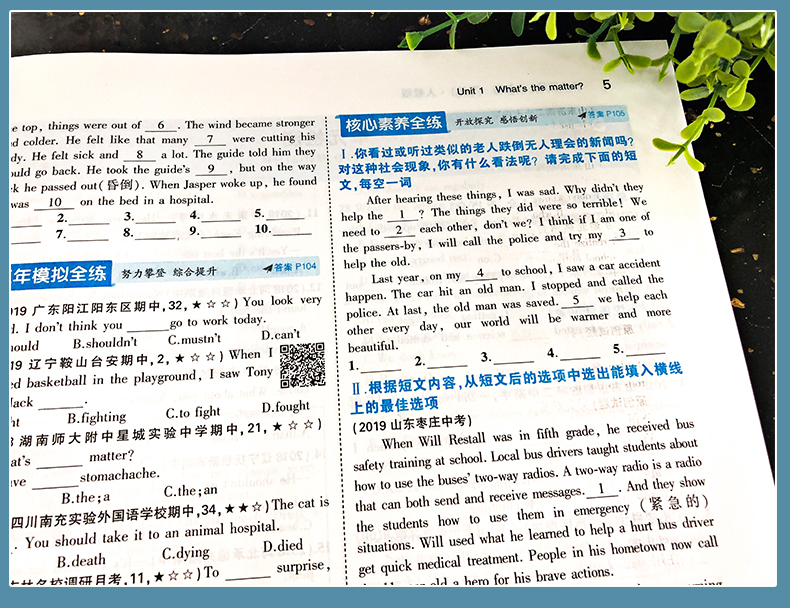 Unit 1 What's the matter? 5
e top, things were out of 6 . The wind became stronger
d colder. He felt like that many 7 were cutting his
dy. He felt sick and 8 a lot. The guide told him they
ould go back. He took the guide's 9 , but on the way
k he passed out(昏倒). When Jasper woke up, he found
was 10 on the bed in a hospital.
2. 3. 4. 5.
7. 8. 9. 10.
年模拟全练 努力攀登 综合提升 答案 P104
019 广东阳江阳东区期中,32,★☆☆) You look very
d. I don't think you ______ go to work today.
ould B.shouldn't C.mustn't D.can't
19 辽宁鞍山台安期中,2,★☆☆) When I
ed basketball in the playground, I saw Tony
Jack ______.
t B.fighting C.to fight D.fought
湖南师大附中星城实验中学期中,21,★☆☆)
at's ______ matter?
ave ______ stomachache.
B.the;a C.the;an
四川南充实验外国语学校期中,34,★★☆) The cat is
. You should take it to an animal hospital.
B.death C.dying D.died
吉林名校调研月考,11,★☆☆) To ______ surprise,
核心素养全练 开放探究 感悟创新 答案 P105
Ⅰ.你看过或听过类似的老人跌倒无人理会的新闻吗?
对这种社会现象,你有什么看法呢? 请完成下面的短
文,每空一词
After hearing these things, I was sad. Why didn't they
help the 1 ? The things they did were so terrible! We
need to 2 each other, don't we? I think if I am one of
the passers-by, I will call the police and try my 3 to
help the old.
Last year, on my 4 to school, I saw a car accident
happen. The car hit an old man. I stopped and called the
police. At last, the old man was saved. 5 we help each
other every day, our world will be warmer and more
beautiful.
1. 2. 3. 4. 5.
Ⅱ.根据短文内容,从短文后的选项中选出能填入横线
上的最佳选项
(2019 山东枣庄中考)
When Will Restall was in fifth grade, he received bus
safety training at school. Local bus drivers taught students about
how to use the buses' two-way radios. A two-way radio is a radio
that can both send and receive messages. 1 . And they show
the students how to use them in emergency (紧急的)
situations. Will used what he learned to help a hurt bus driver
get quick medical treatment. People in his hometown now call
old a hero for his brave actions.